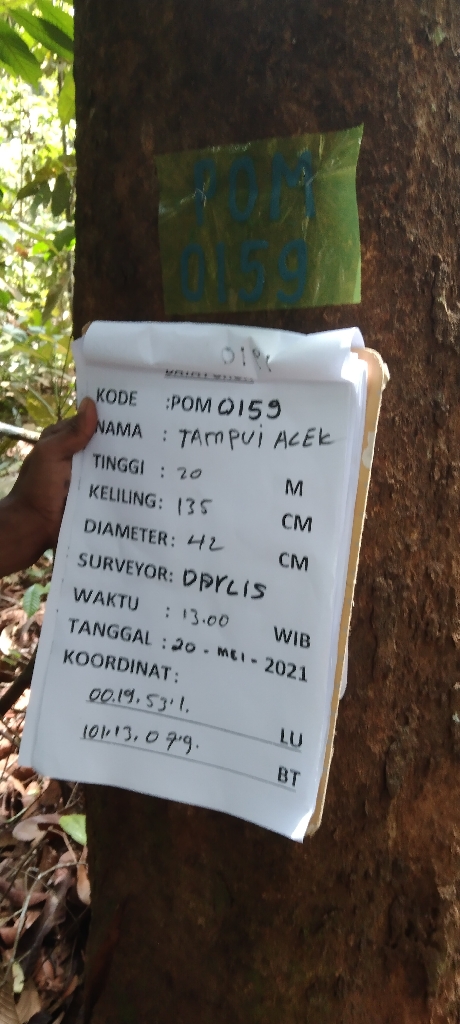 POM
0159
KODE :POM 0159
NAMA : TAMPUI ACEK
TINGGI : 20 M
KELILING: 135 CM
DIAMETER: 42 CM
SURVEYOR: DARLIS
WAKTU : 13.00 WIB
TANGGAL : 20 - MEI - 2021
KOORDINAT:
00.19.531. LU
101.13.079. BT